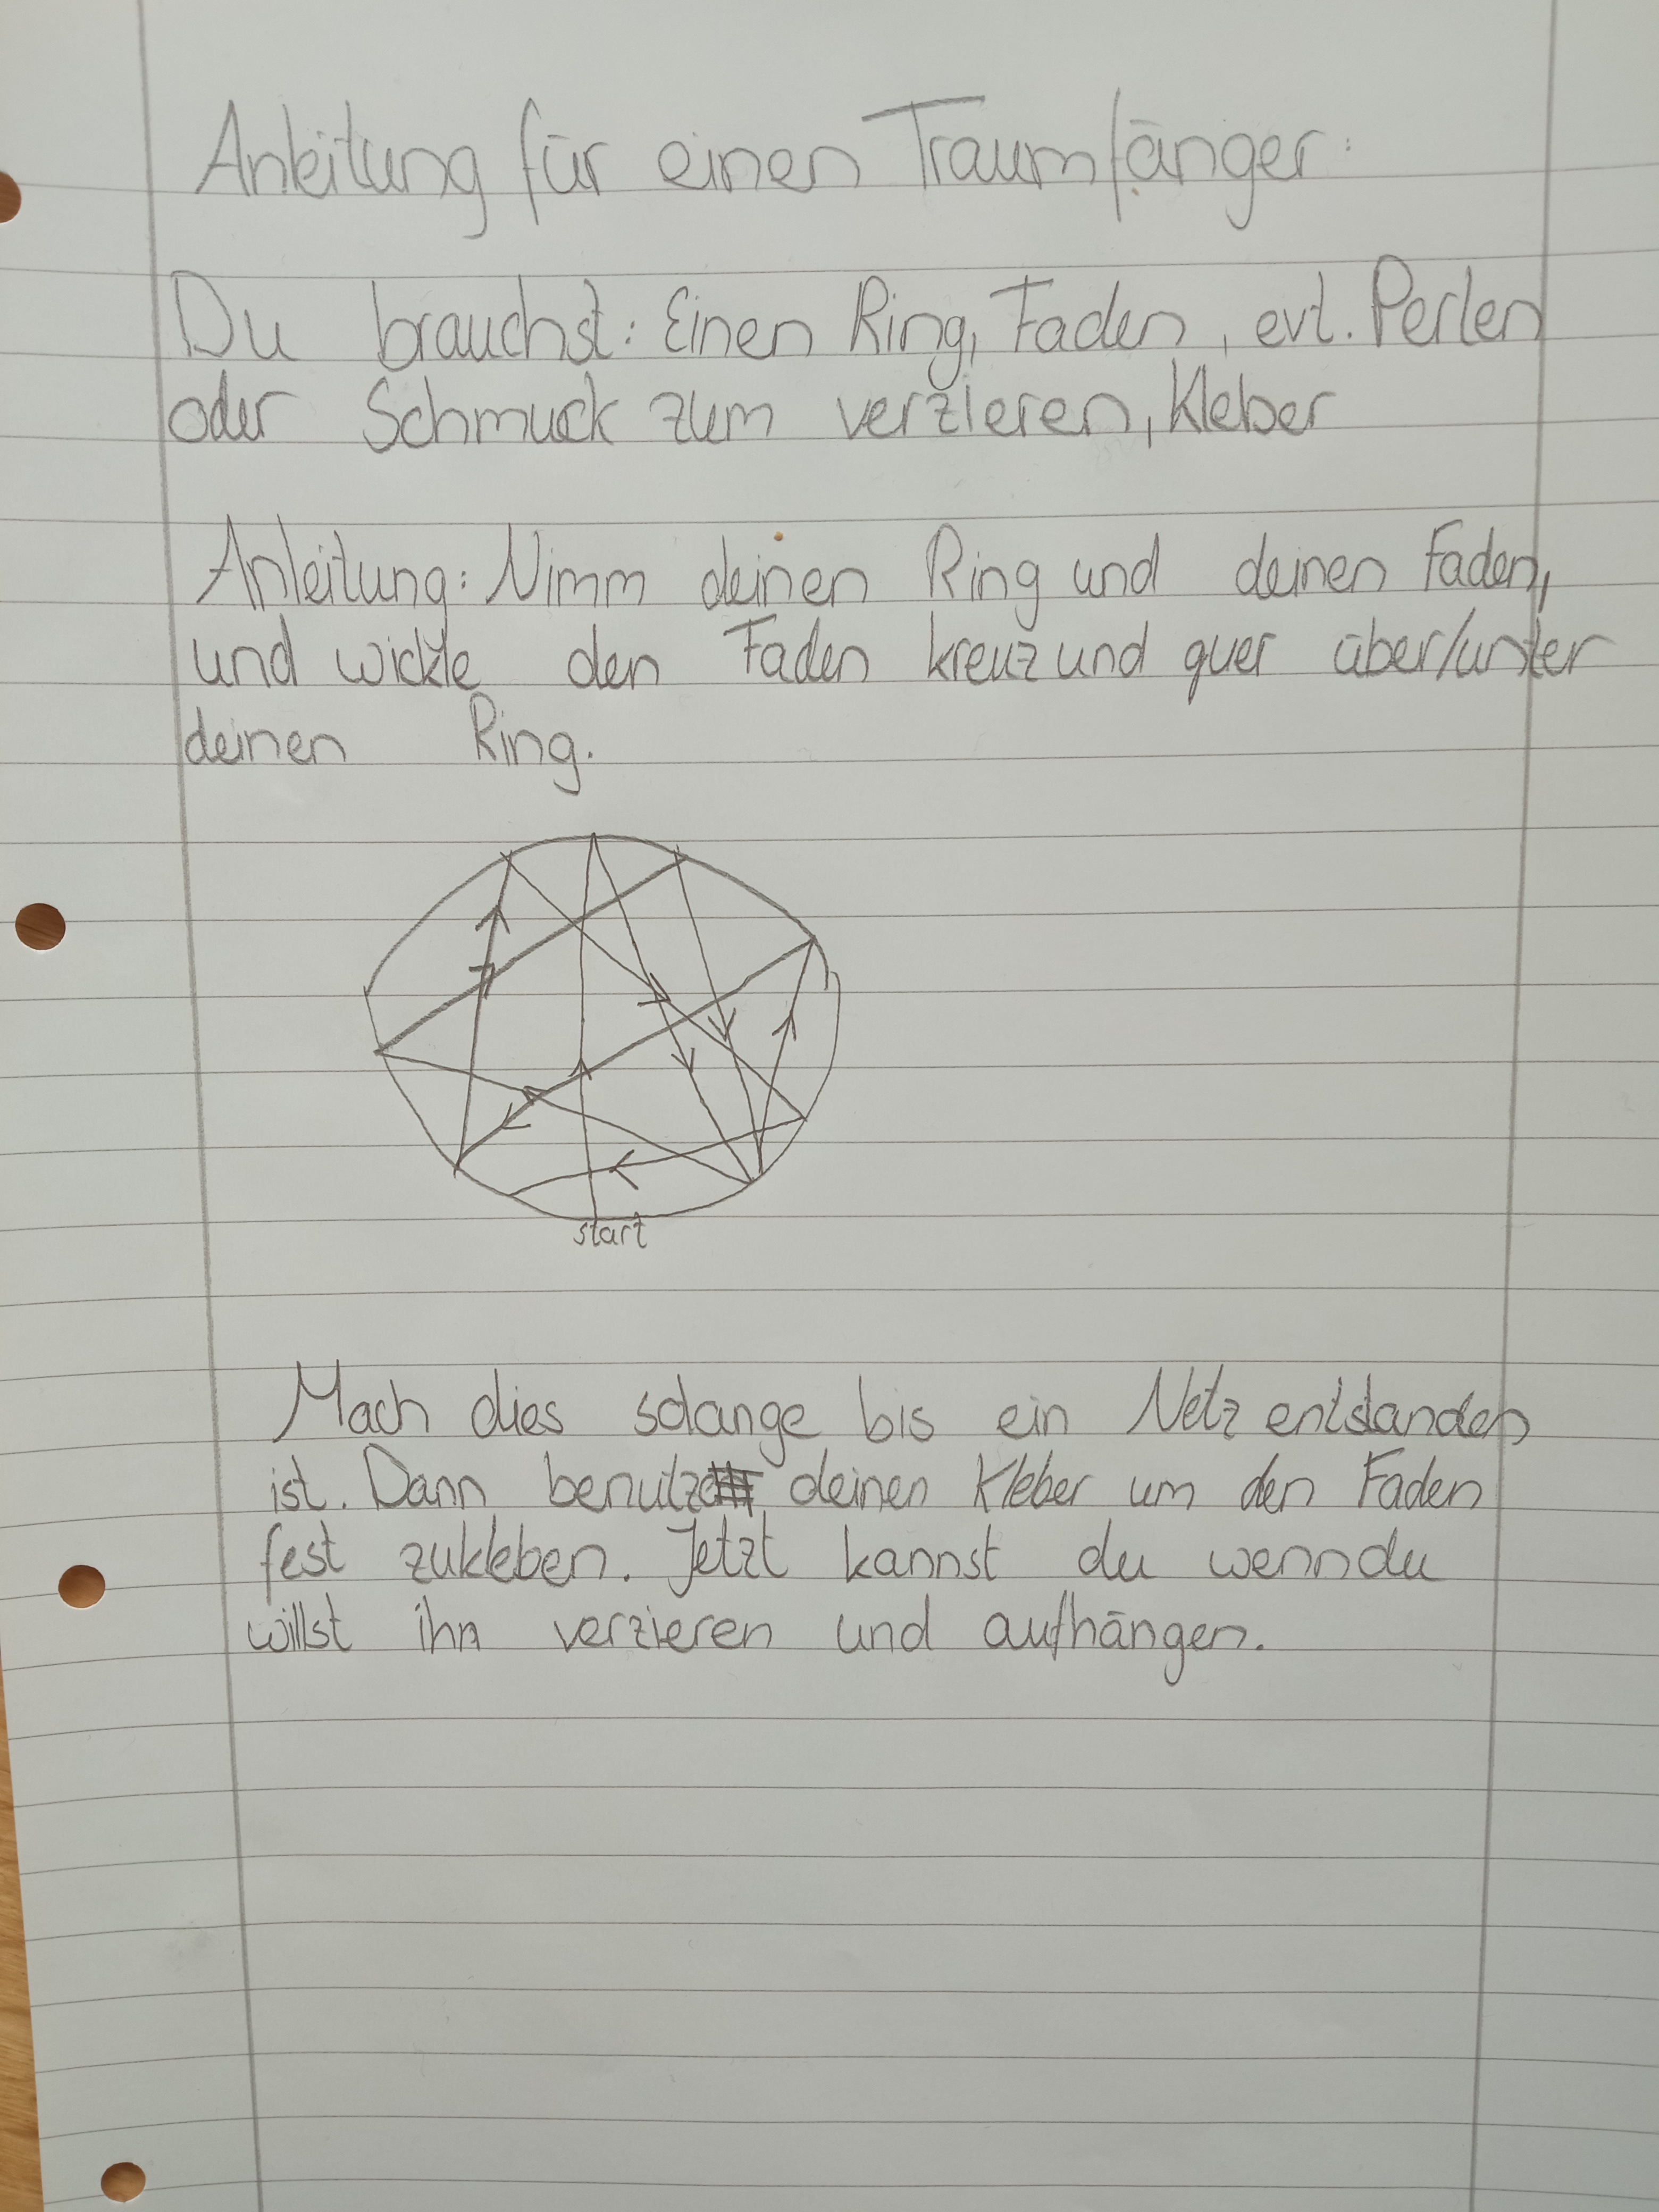 Anleitung für einen Traumfänger:
Du brauchst: Einen Ring, Faden, evt. Perlen
oder Schmuck zum verzieren, Kleber
Anleitung: Nimm deinen Ring und deinen Faden,
und wickle den Faden kreuz und quer über/unter
deinen Ring.
start
Mach dies solange bis ein Netz entstanden
ist. Dann benutz deinen Kleber um den Faden
fest zukleben. Jetzt kannst du wenn du
willst ihn verzieren und aufhängen.